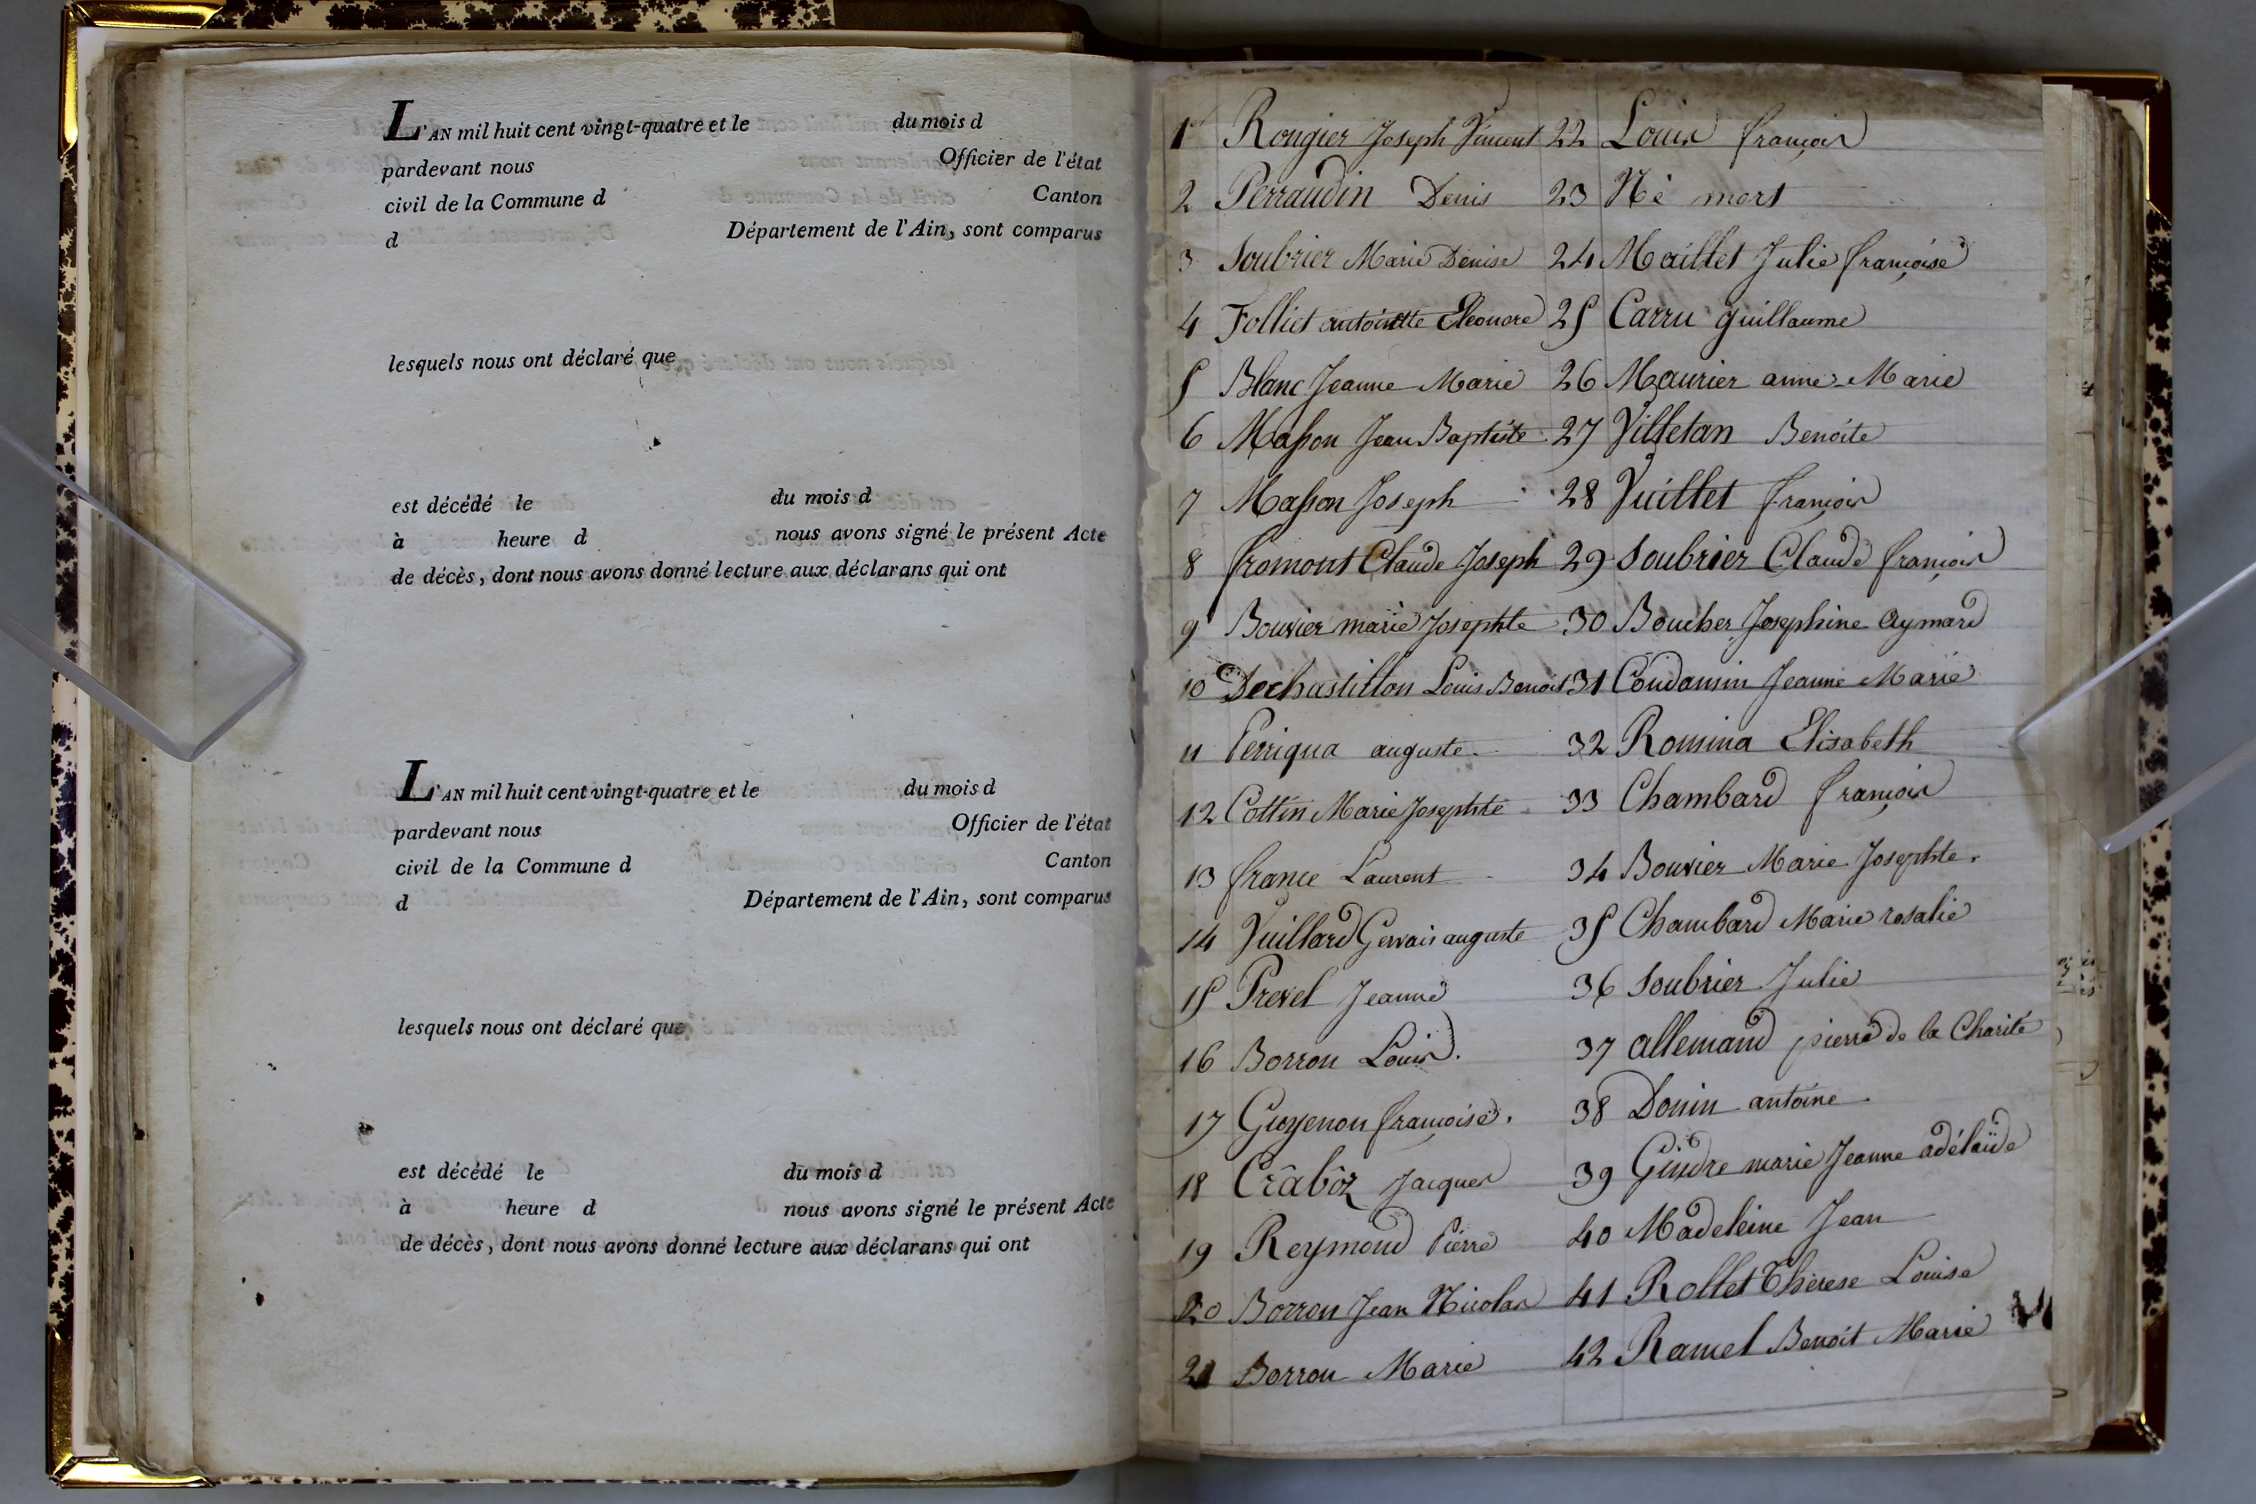 L'AN mil huit cent vingt-quatre et le du mois d
pardevant nous Officier de l'état
civil de la Commune d Canton
d Département de l'Ain, sont comparus
lesquels nous ont déclaré que
est décédé le du mois d
à heure d nous avons signé le présent Acte
de décès, dont nous avons donné lecture aux déclarans qui ont
L'AN mil huit cent vingt-quatre et le du mois d
pardevant nous Officier de l'état
civil de la Commune d Canton
d Département de l'Ain, sont comparus
lesquels nous ont déclaré que
est décédé le du mois d
à heure d nous avons signé le présent Acte
de décès, dont nous avons donné lecture aux déclarans qui ont
1 Rongier Joseph Vincent
2 Perraudin Denis
3 Soubrier Marie Denise
4 Folliet antoinette Eleonore
5 Blanc Jeanne Marie
6 Masson Jean Baptiste
7 Masson Joseph
8 fromont Claude Joseph
9 Bouvier marie Josephte
10 Dechastillon Louis Benoit
11 Perriqua auguste
12 Cottin Marie Josephte
13 france Laurent
14 Vuillard Gervais auguste
15 Prevel Jeanne
16 Borron Louis
17 Guyenon françoise
18 Crâbôz Jacques
19 Reymond Pierre
20 Borron Jean Nicolas
21 Borron Marie
22 Louis françois
23 Né mort
24 Maillet Julie françoise
25 Carru guillaume
26 Maurier anne-Marie
27 Villetan Benoite
28 Vuillet françois
29 Soubrier Claude françois
30 Boucher Josephine aymard
31 Condamin Jeanne Marie
32 Romina Elisabeth
33 Chambard françois
34 Bouvier Marie Josephte
35 Chambard Marie rosalie
36 Soubrier Julie
37 allemand pierre de la Charité
38 Donin antoine
39 Gindre marie Jeanne adélaïde
40 Madeleine Jean
41 Rollet Thérese Louise
42 Ramel Benoit Marie